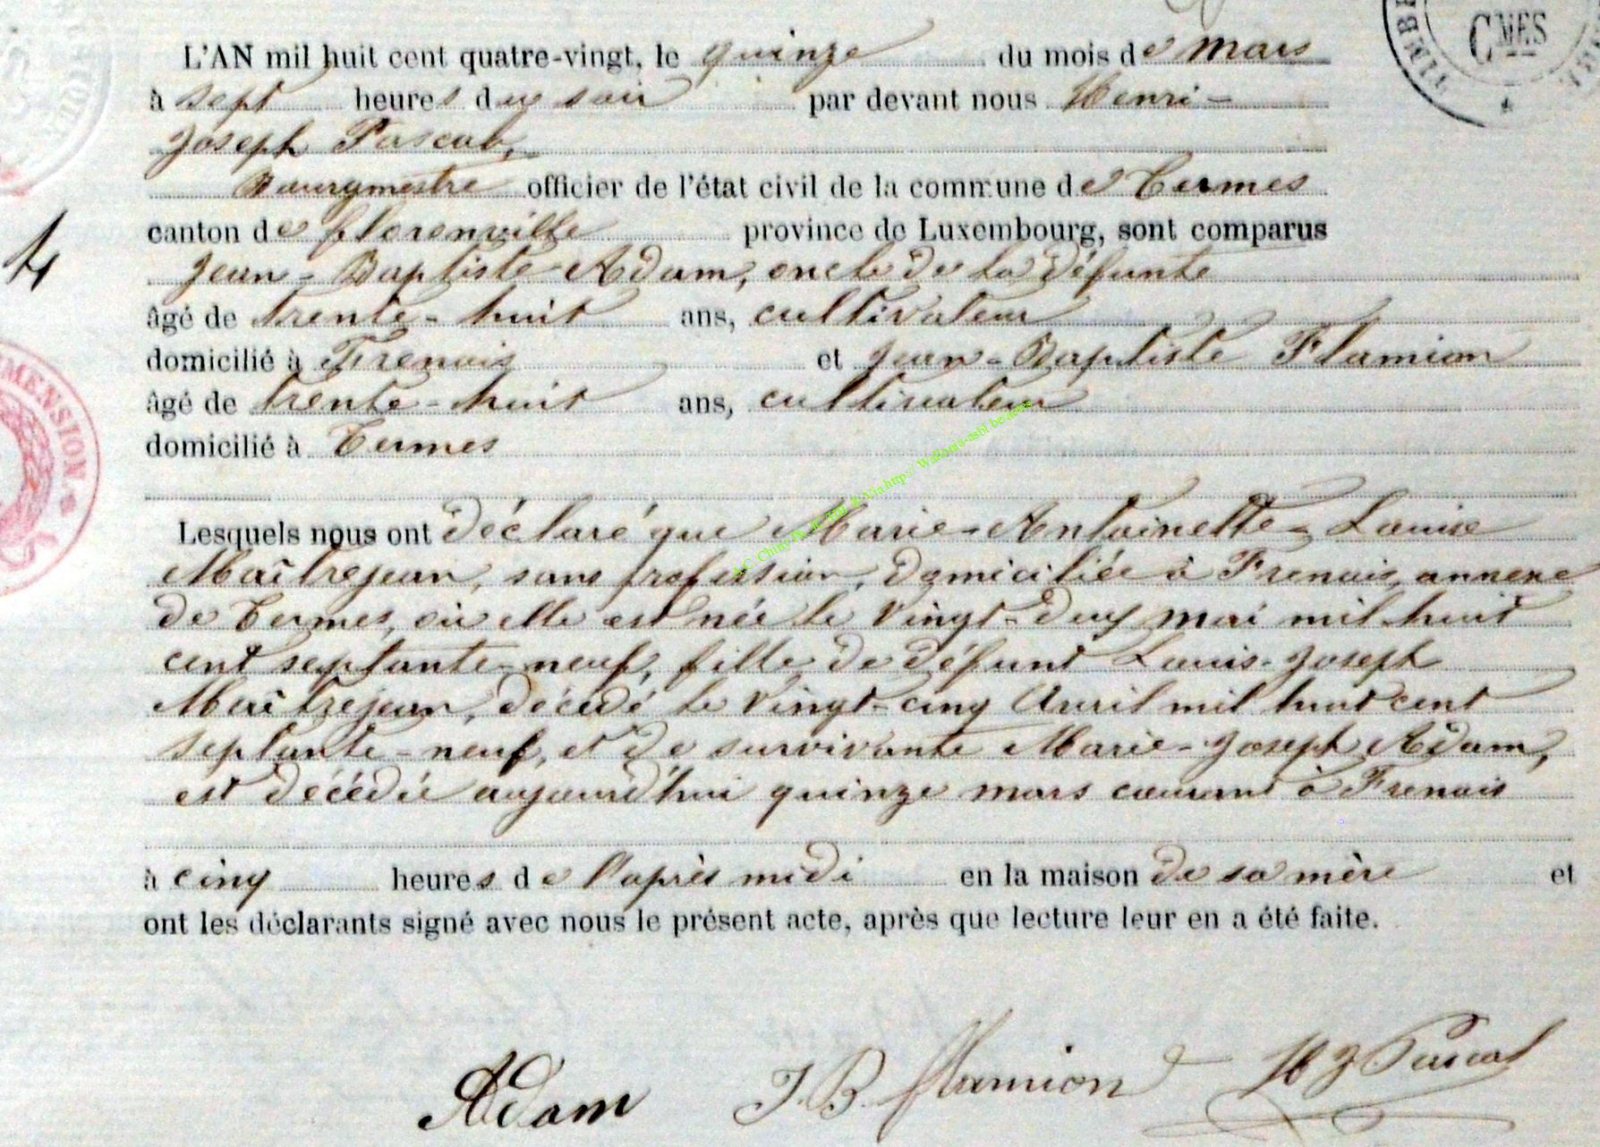 CMES
L'AN mil huit cent quatre-vingt, le quinze du mois de mars
à sept heures du soir par devant nous Henri-
Joseph Pascal,
Bourgmestre officier de l'état civil de la commune de Termes
canton de florenville province de Luxembourg, sont comparus
Jean-Baptiste Adam, oncle de la défunte
âgé de trente-huit ans, cultivateur
domicilié à Frenois et Jean-Baptiste Flamion
âgé de trente-huit ans, cultivateur
domicilié à Termes
4
MENSION
Lesquels nous ont déclaré que Marie-Antoinette-Louise
Maîtrejean, sans profession, domiciliée à Frenois, annexe
de Termes, où elle est née le vingt-deux mai mil huit
cent septante-neuf, fille de défunt Louis-Joseph
Maîtrejean, décédé le vingt-cinq Avril mil huit cent
septante-neuf, et de survivante Marie-Joseph Adam,
est décédée aujourd'hui quinze mars courant à Frenois
à cinq heures de l'après midi en la maison de sa mère et
ont les déclarants signé avec nous le présent acte, après que lecture leur en a été faite.
Adam J.B. Flamion H J Pascal